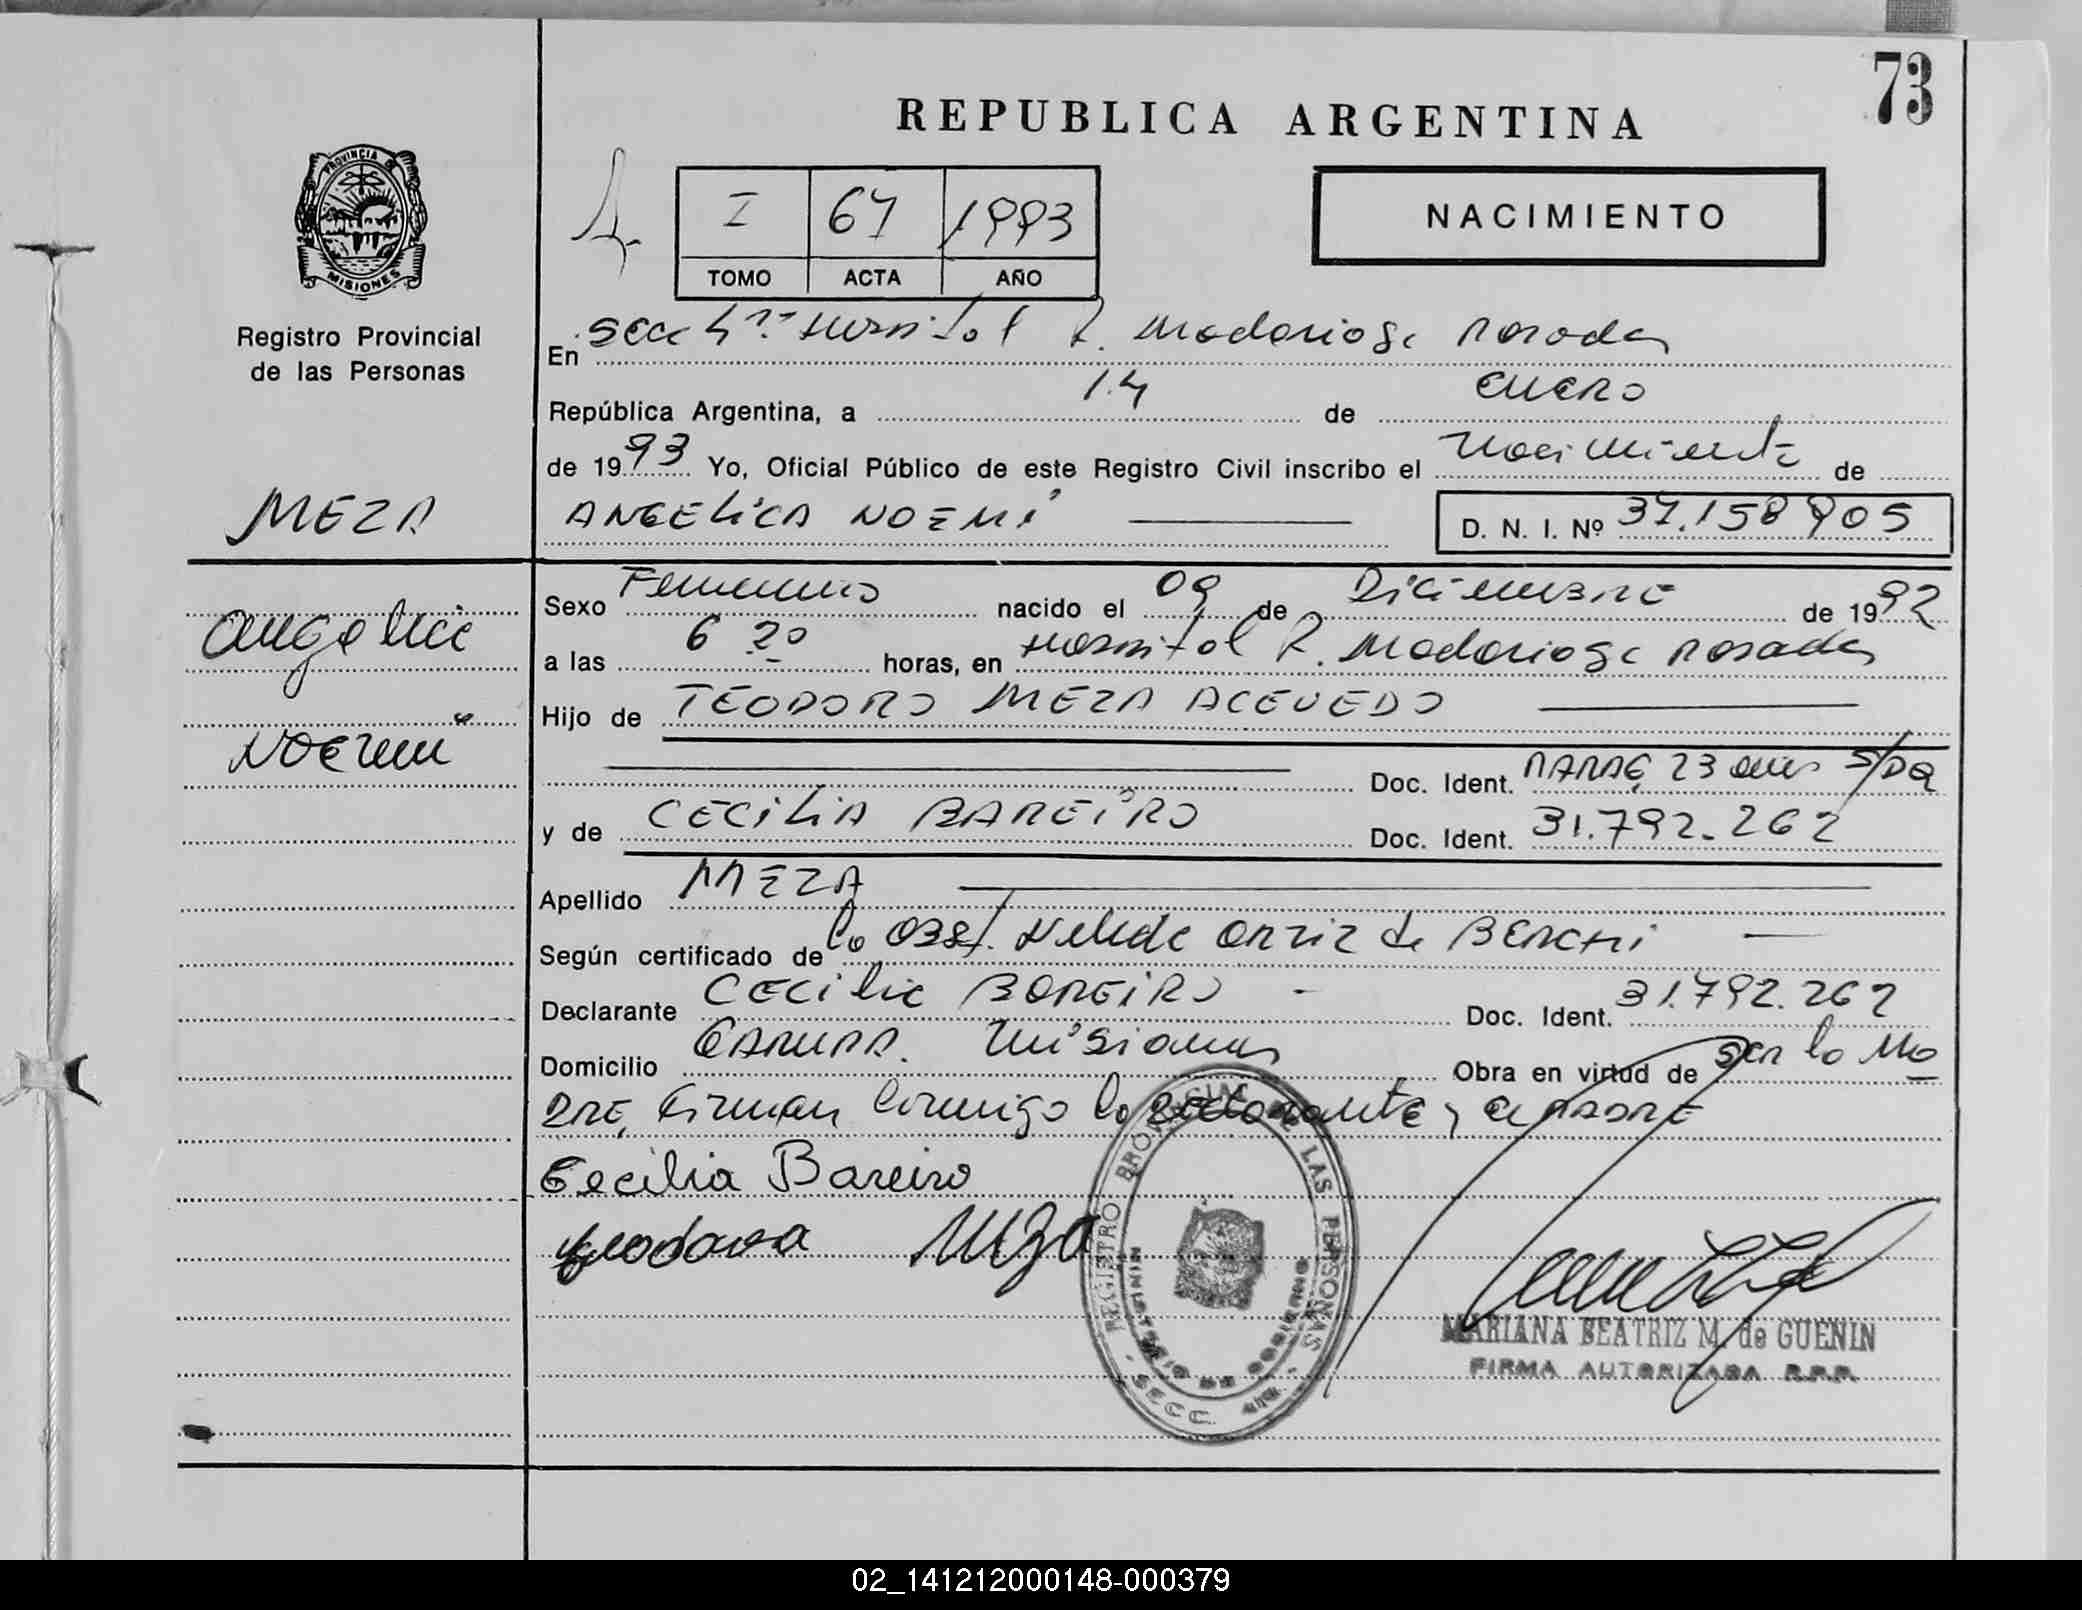 73
REPUBLICA ARGENTINA
PROVINCIA DE
MISIONES
Registro Provincial
de las Personas
I 67 1993
TOMO ACTA AÑO
NACIMIENTO
En Secc 4ta Hospital R. Madariaga Posadas
República Argentina, a 14 de enero
de 1993 Yo, Oficial Público de este Registro Civil inscribo el nacimiento de
MEZA
ANGELICA NOEMI D. N. I. Nº 37.158.905
Angelica
Noemi
Sexo Femenino nacido el 09 de Diciembre de 1992
a las 6 20 horas, en Hospital R. Madariaga Posadas
Hijo de TEODORO MEZA ACEVEDO
Doc. Ident. PARAG, 23 años S/DQ
y de CECILIA BAREIRO Doc. Ident. 31.792.262
Apellido MEZA
Según certificado de la OBST. Nelide ORTIZ de BERCHI
Declarante Cecilia BAREIRO Doc. Ident. 31.792.262
Domicilio GARUPA. Misiones Obra en virtud de ser la Ma
DRE, Firman conmigo la declarante y el PADRE
Cecilia Bareiro
Meza
REGISTRO PROVINCIAL DE LAS PERSONAS
MINISTERIO DE GOBIERNO
SECC.
MARIANA BEATRIZ M. de GUENIN
FIRMA AUTORIZADA R.P.P.
02_141212000148-000379